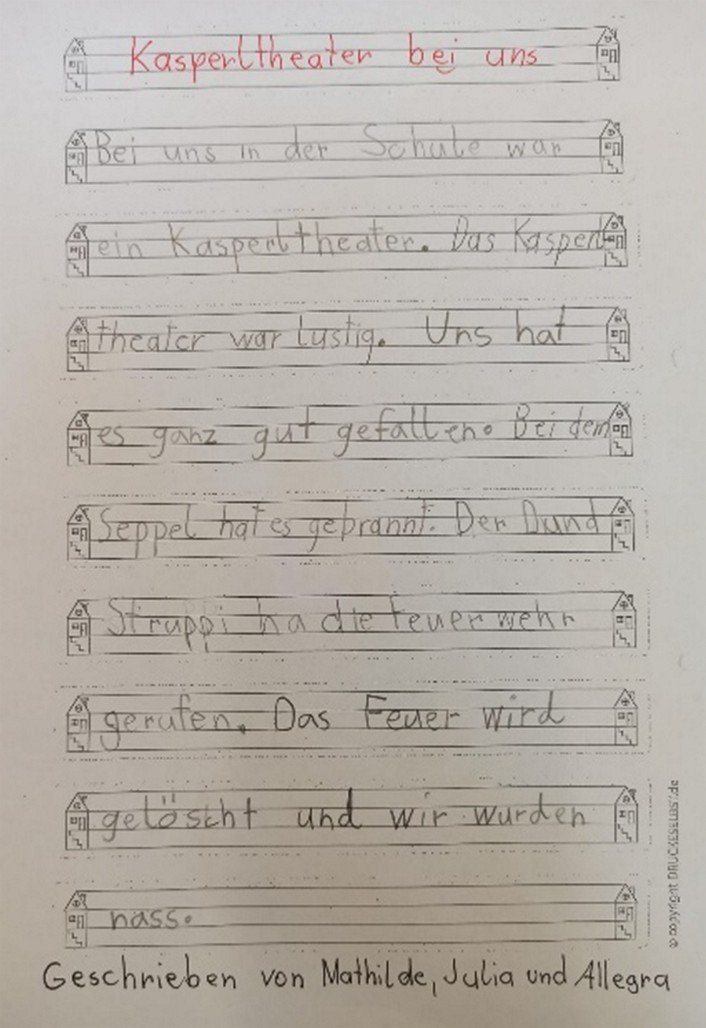 Kasperltheater bei uns
Bei uns in der Schule war
ein Kasperltheater. Das Kasperl
theater war lustig. Uns hat
es ganz gut gefallen. Bei dem
Seppel hat es gebrannt. Der Dund
Struppi ha die feuerwehr
gerufen. Das Feuer wird
gelöscht und wir wurden
nass.
Geschrieben von Mathilde, Julia und Allegra
© copyright DRUCKESELBST.de